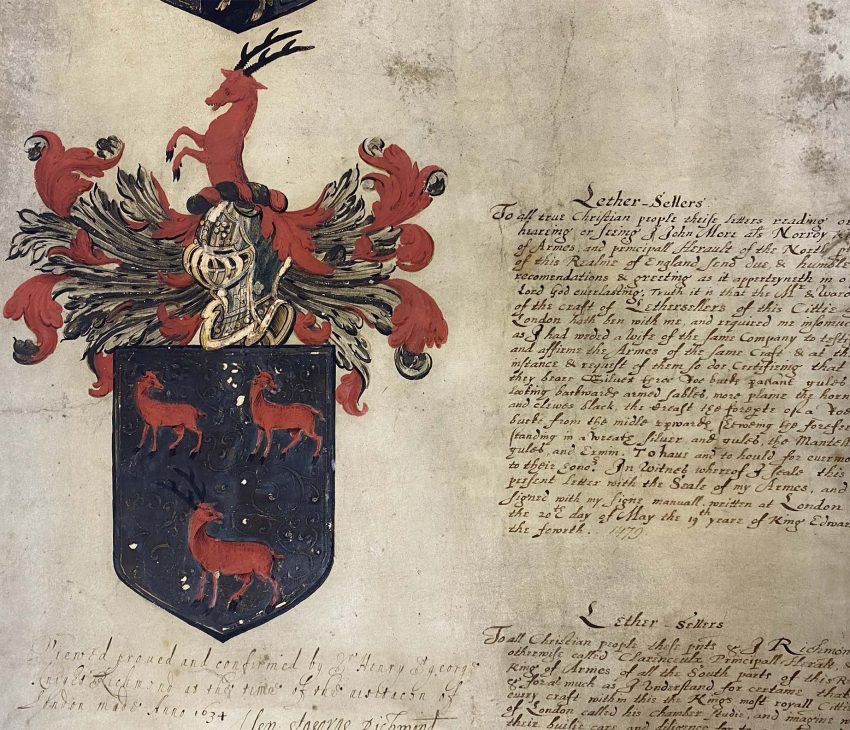 Lether-Sellers
To all true Christian people theise letters reading or
hearing or seeing I John More als Norroy
of Armes, and principall Herault of the North
of this Realme of England send due & humble
recomendations & greeting as it apperteyneth in o
Lord God everlasting. Truth it is that the Mr & Ward
of the craft of Lethersellers of this Cittie
London hath ben with me, and required me
as I had weded a wife of the same Company to
and affirme the Armes of the same Craft & at th
instance & request of them so doe Certifieing that
they beare Silver three Roe bucks pasant gules
looking backwards armed sables, more plame the horn
and clewes black, the Creast the forepte of a Roe
bucke from the midle upwards the forefee
standing in a wreath silver and gules, the Mantell
gules, and Ermin. To have and to hould for evermor
to their In Witnes whereof I seale this
present letter with the Seale of my Armes, and
signed with my signe manuall, written at London
the 20th day of May the 19th yeare of King Edwar
the fowrth. 1479
Lether-Sellers
To all Christian people these pnts & I Richmon
otherwise called Clarencieulx Principall Herak,
King of Armes of all the South parts of this R
& for as much as I understand for certame that
every craft within this the Kings most royall Cittie
of London called his chamber studie, and imagine
their busie care and diligence
Viewed proued and confirmed by Sr Henry St george
Knight Richmond at the time of the visitacon of
London made Anno 1634
Hen StGeorge Richmont